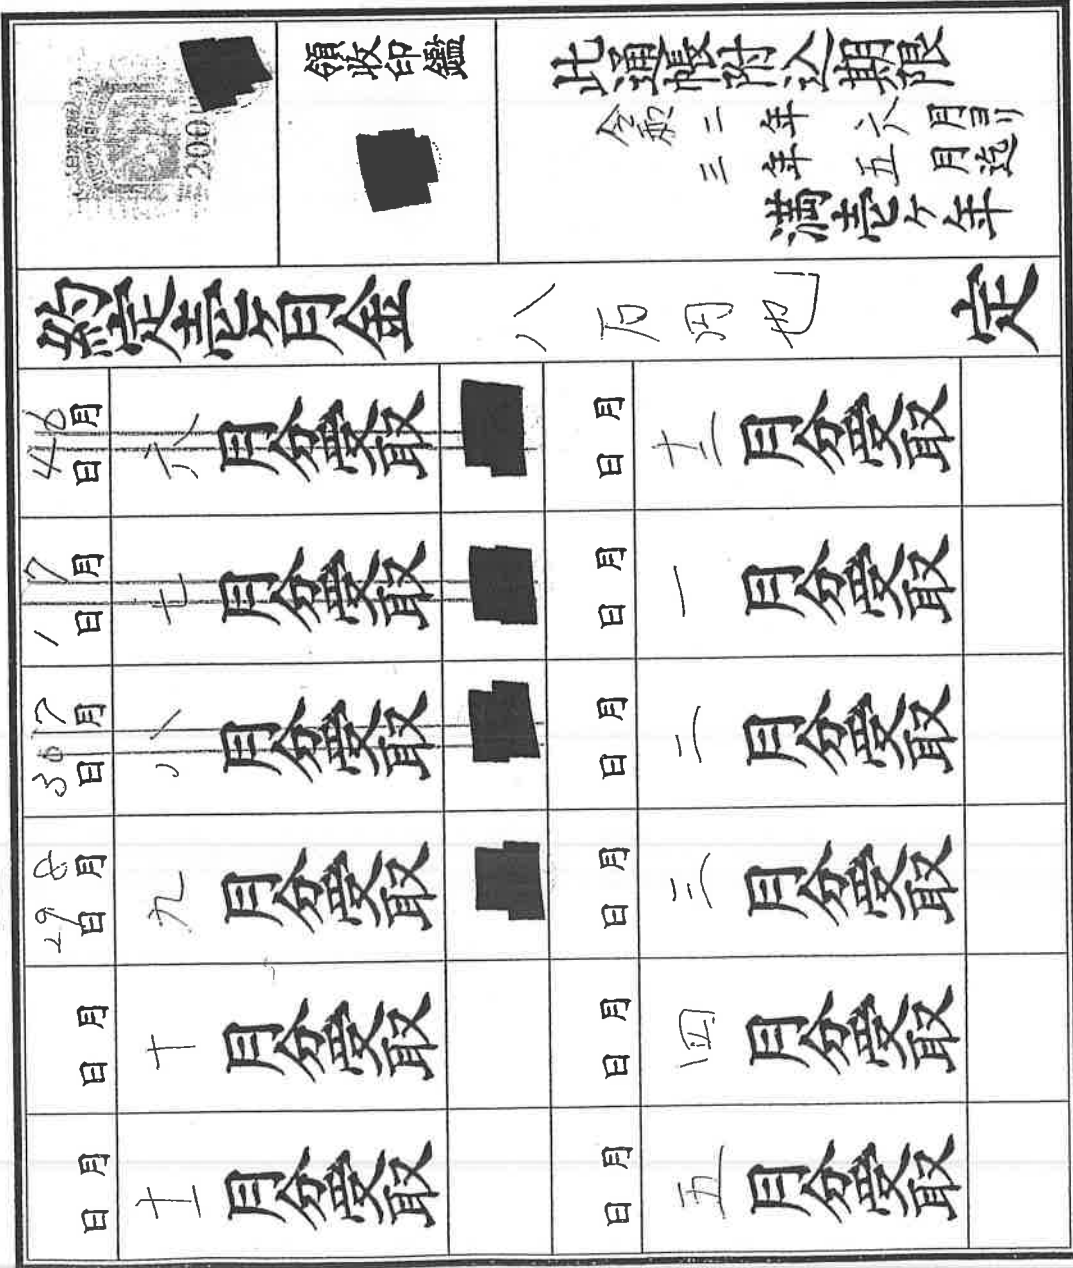 200
領收印鑑
此通帳附込期限
令和二年六月ヨリ
三年五月迄
満壱ヶ年
約定壱ヶ月金 八万円也 定
6月4日 六月分受取
月日 十二月分受取
7月1日 七月分受取
月日 一月分受取
7月30日 八月分受取
月日 二月分受取
8月29日 九月分受取
月日 三月分受取
月日 十月分受取
月日 四月分受取
月日 十一月分受取
月日 五月分受取